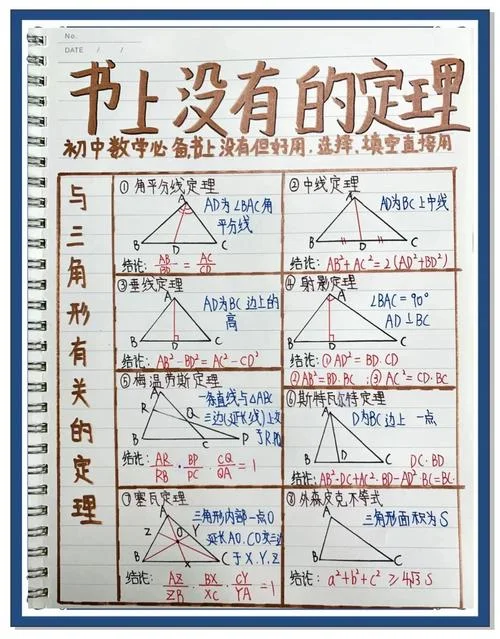 No.
DATE / /
书上没有的定理
初中数学必备,书上没有但好用,选择、填空直接用
与三角形有关的定理
① 角平分线定理
AD为∠BAC角
平分线
A
B D C
结论: AB/BD = AC/CD
② 中线定理
AD为BC上中线
A
B D C
结论: AB²+AC²=2(AD²+BD²)
③垂线定理
AD为BC边上的
高
A
B D C
结论: AB²-BD²=AC²-CD²
④ 射影定理
∠BAC=90°
AD⊥BC
A
B D C
结论:①AD²=BD·CD
②AB²=BD·BC ;③AC²=CD·BC
⑤梅涅劳斯定理
一条直线与△ABC
三边(延长线)上交
于R
A
R Q
B C P
结论: AR/RB · BP/PC · CQ/QA =1
⑥斯特瓦尔特定理
D为BC边上一点
A
B D C
DC·BD
结论:AB²·DC+AC²·BD-AD²·BC=BC·
⑦塞瓦定理
三角形内部一点O
延长AO、CO交三边
于X.Y.Z
A
Z O Y
B X C
结论: AZ/ZB · BX/XC · CY/YA =1
⑧外森皮克不等式
三角形面积为S
A
B C
结论: a²+b²+c²≥4√3 S